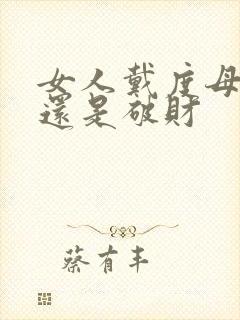 女人戴度母
還是破財
蔡有丰